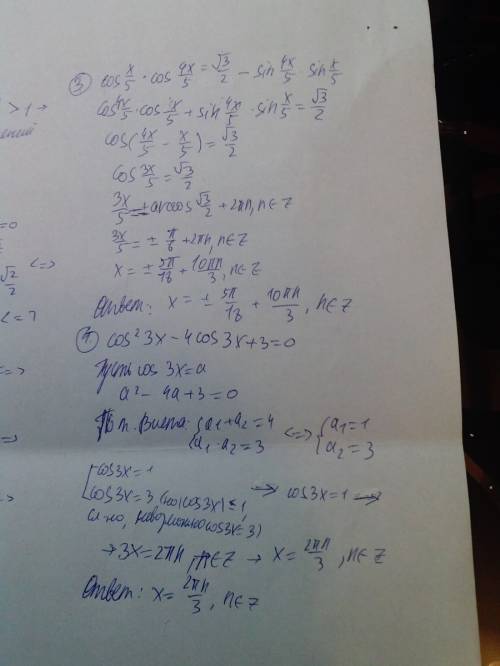 ③ cos x/5 · cos 4x/5 = √3/2 − sin 4x/5 sin x/5
cos 4x/5 · cos x/5 + sin 4x/5 · sin x/5 = √3/2
cos(4x/5 − x/5) = √3/2
cos 3x/5 = √3/2
3x/5 = ± arccos √3/2 + 2πn, n∈Z
3x/5 = ± π/6 + 2πn, n∈Z
x = ± 5π/18 + 10πn/3, n∈Z
Ответ: x = ± 5π/18 + 10πn/3, n∈Z
④ cos² 3x − 4 cos 3x + 3 = 0
Пусть cos 3x = a
a² − 4a + 3 = 0
По т. Виета: { a1 + a2 = 4 <=> { a1 = 1
a1 · a2 = 3 a2 = 3
[ cos 3x = 1
cos 3x = 3 (но |cos 3x| ≤ 1, → cos 3x = 1 →
сл-но, невозможно cos 3x = 3)
→ 3x = 2πn, n∈Z → x = 2πn/3, n∈Z
Ответ: x = 2πn/3, n∈Z
> 1 →
= 0
√2/2 <=>
=>
=>